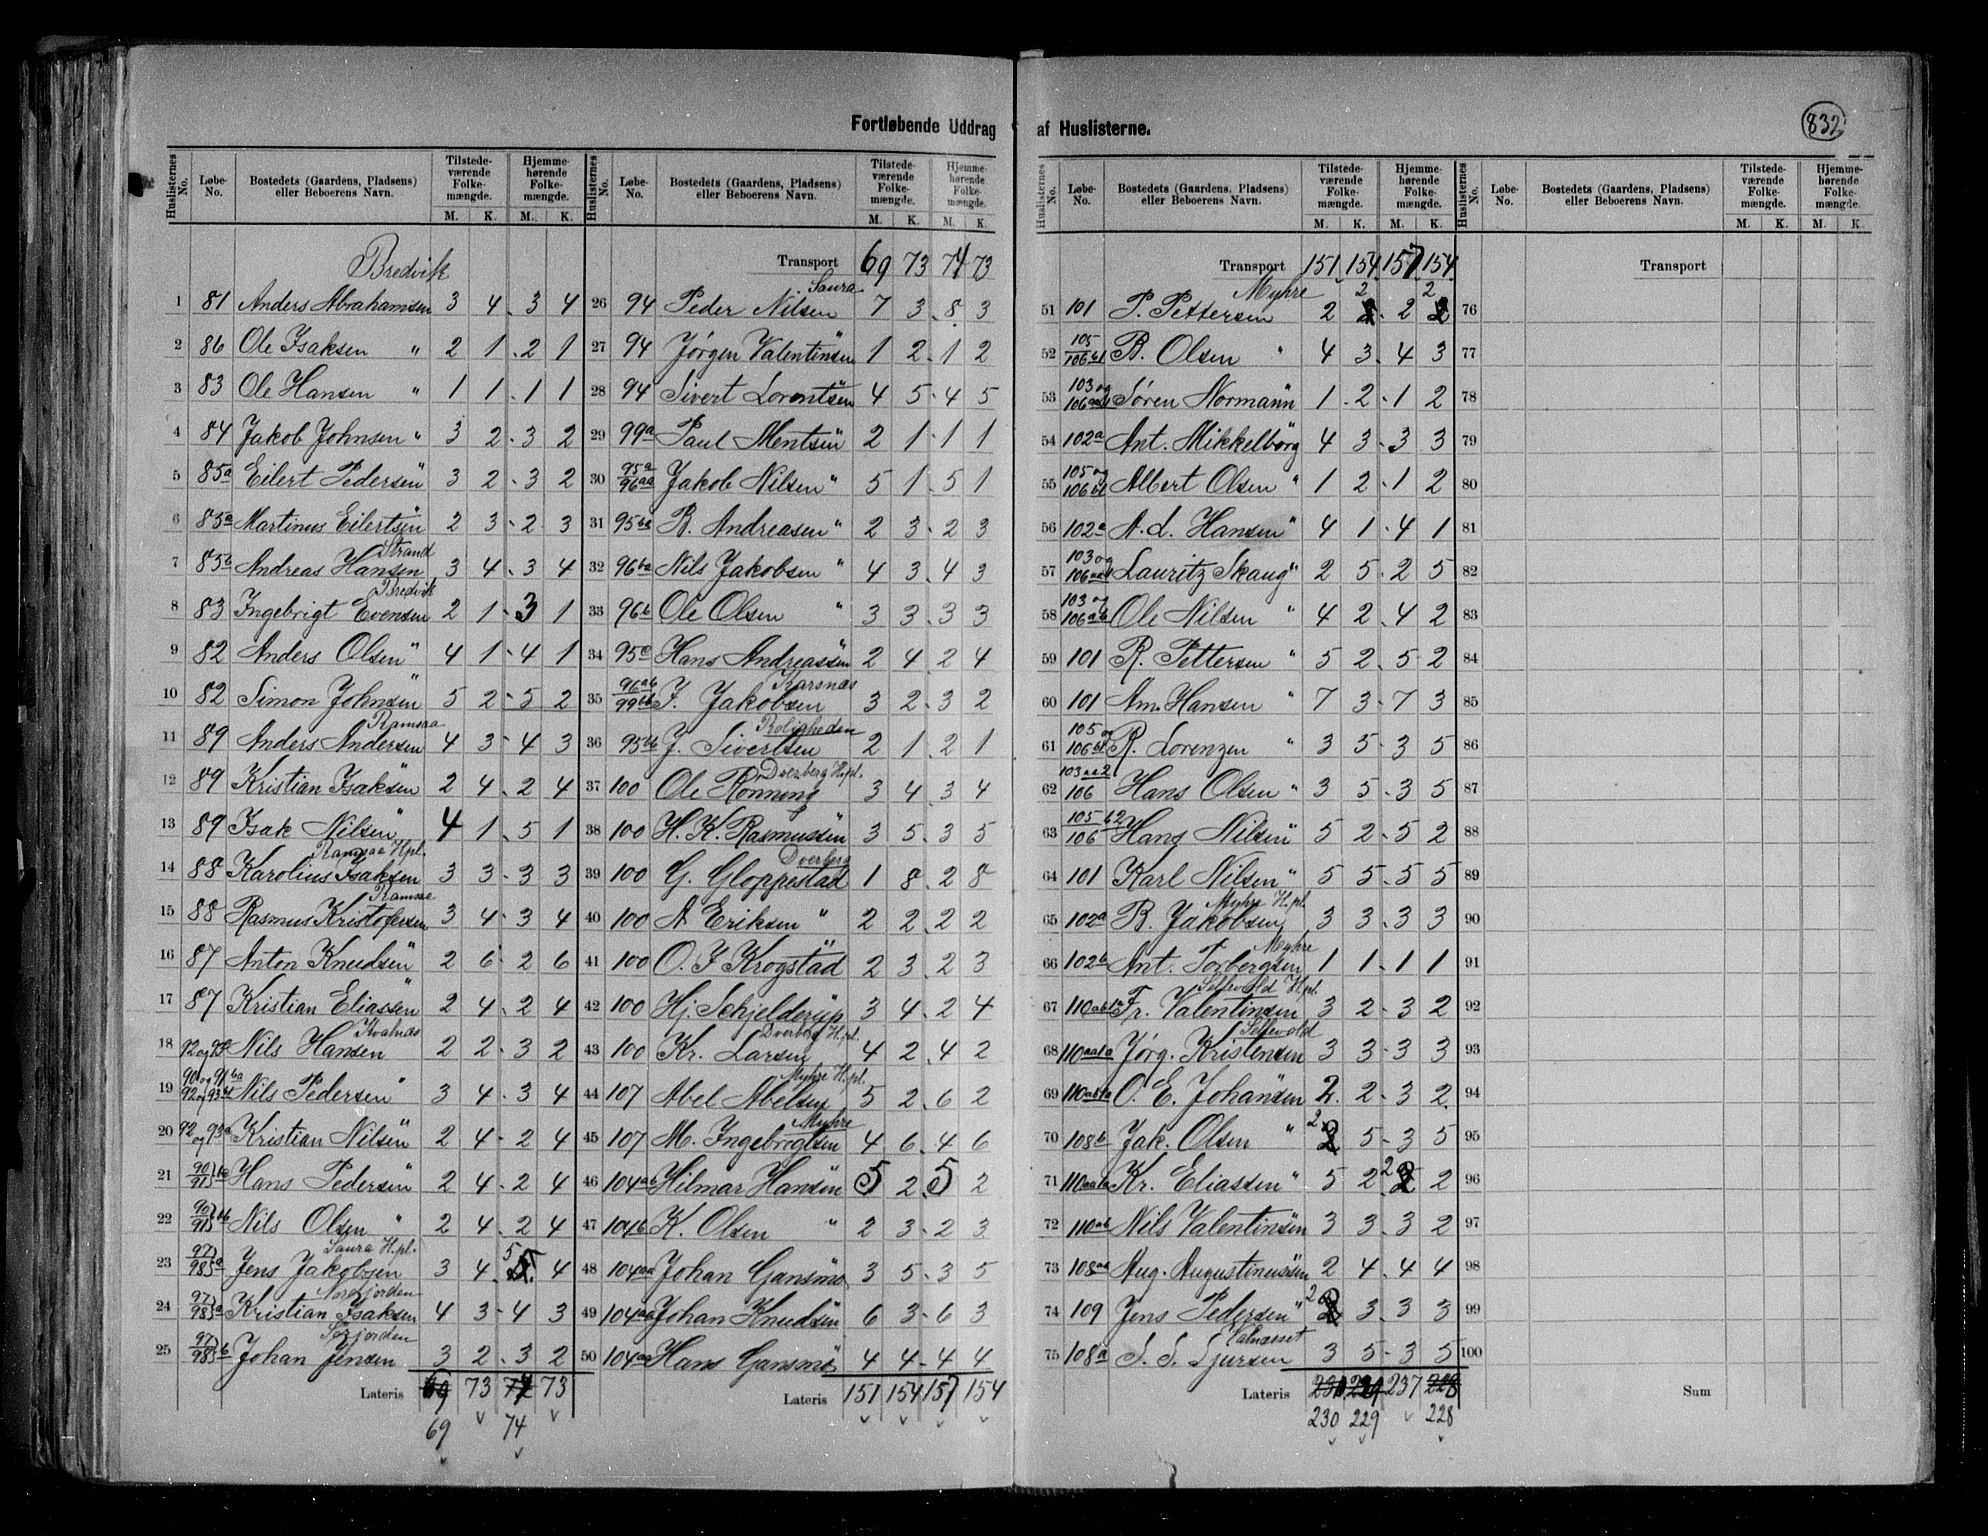 Fortløbende Uddrag af Huslisterne.
832
Huslisternes No. Løbe-No. Bostedets (Gaardens, Pladsens) eller Beboerens Navn. Tilstedeværende Folkemængde. M. K. Hjemmehørende Folkemængde. M. K.
Bredvik
1 81 Anders Abrahamsen 3 4 3 4
2 86 Ole Isaksen " 2 1 2 1
3 83 Ole Hansen " 1 1 1 1
4 84 Jakob Johnsen " 3 2 3 2
5 85a Eilert Pedersen " 3 2 3 2
6 85a Martinus Eilertsen " 2 3 2 3
Strand
7 85b Andreas Hansen 3 4 3 4
Bredvik
8 83 Ingebrigt Evensen 2 1 3 1
9 82 Anders Olsen " 4 1 4 1
10 82 Simon Johnsen " 5 2 5 2
Ramsaa
11 89 Anders Andersen 4 3 4 3
12 89 Kristian Isaksen " 2 4 2 4
13 89 Isak Nilsen " 4 1 5 1
Ramsaa H.pl.
14 88 Karolius Isaksen 3 3 3 3
Ramsaa
15 88 Rasmus Kristofersen 3 4 3 4
16 87 Anton Knudsen " 2 6 2 6
17 87 Kristian Eliassen " 2 4 2 4
Kvalnæs
18 92 og 93a Nils Hansen 2 2 3 2
19 90 og 91 ba 92 og 93 Nils Pedersen " 3 4 3 4
20 92 og 93a Kristian Nilsen " 2 4 2 4
21 90 91 Hans Pedersen " 2 4 2 4
22 90 91 Nils Olsen " 2 4 2 4
Saura H.pl.
23 97 98 a Jens Jakobsen 3 4 5 4
Nordjorden
24 97 98 a Kristian Isaksen 4 3 4 3
Sørjorden
25 97 98 b Johan Jensen 3 2 3 2
Lateris 69 73 74 73
69 74
Huslisternes No. Løbe-No. Bostedets (Gaardens, Pladsens) eller Beboerens Navn. Tilstedeværende Folkemængde. M. K. Hjemmehørende Folkemængde. M. K.
Transport 69 73 74 73
Saura
26 94 Peder Nilsen 7 3 8 3
27 94 Jørgen Valentinsen " 1 2 1 2
28 94 Sivert Lorentsen " 4 5 4 5
29 99a Paul Mentsen " 2 1 1 1
30 95a 96aa Jakob Nilsen " 5 1 5 1
31 95 B. Andreasen " 2 3 2 3
32 96ba Nils Jakobsen " 4 3 4 3
33 96b Ole Olsen " 3 3 3 3
34 95 Hans Andreassen " 2 4 2 4
Karsnæs
35 96ab 99bb J. Jakobsen 3 2 3 2
Roligheden
36 95 J. Sivertsen 2 1 2 1
Dverberg H.pl.
37 100 Ole Rønning 3 4 3 4
38 100 H. K. Rasmussen " 3 5 3 5
Dverberg
39 100 G. Gloppestad 1 8 2 8
40 100 A. Eriksen " 2 2 2 2
41 100 O. J Krogstad " 2 3 2 3
42 100 Hj. Schjelderup " 3 4 2 4
Dverberg H.pl.
43 100 Kr. Larsen 4 2 4 2
Myhre H.pl.
44 107 Abel Abelsen 5 2 6 2
Myhre
45 107 M. Ingebrigtsen 4 6 4 6
46 104ab Hilmar Hansen " 5 2 5 2
47 104b K. Olsen " 2 3 2 3
48 104aa Johan Gansmo " 3 5 3 5
49 104aa Johan Knudsen " 6 3 6 3
50 104aa Hans Gansmo " 4 4 4 4
Lateris 151 154 157 154
Huslisternes No. Løbe-No. Bostedets (Gaardens, Pladsens) eller Beboerens Navn. Tilstedeværende Folkemængde. M. K. Hjemmehørende Folkemængde. M. K.
Transport 151 154 157 154
Myhre
51 101 P. Pettersen 2 2 2 2
52 105 106 B. Olsen " 4 3 4 3
53 103 og 106 Søren Normann " 1 2 1 2
54 102a Ant. Mikkelborg " 4 3 3 3
55 105 og 106 Albert Olsen " 1 2 1 2
56 102a A. L. Hansen " 4 1 4 1
57 103 og 106 Lauritz Skaug " 2 5 2 5
58 103 og 106ab Ole Nilsen " 4 2 4 2
59 101 R. Pettersen " 5 2 5 2
60 101 Am. Hansen " 7 3 7 3
61 105 og 106 R. Lorenzen " 3 5 3 5
62 103aa2 106 Hans Olsen " 3 5 3 5
63 105 b2 106 Hans Nilsen " 5 2 5 2
64 101 Karl Nilsen " 5 5 5 5
Myhre H.pl.
65 102a B. Jakobsen 3 3 3 3
Myhre
66 102b Ant. Torbergsen 1 1 1 1
Sellevold H.pl.
67 110 Fr. Valentinsen 3 2 3 2
Sellevold
68 110aa1a Jørg. Kristensen 3 3 3 3
69 110ab1a O. E. Johansen " 2 2 3 2
70 108b Jak. Olsen " 2 5 3 5
71 110aa1a Kr. Eliassen " 5 2 2 2
72 110ab Nils Valentinsen " 3 3 3 2
73 108aa Aug. Augustinussen " 2 4 4 4
74 109 Jens Pedersen " 2 3 3 3
Valnæsset
75 108a S. S. Sjursen 3 5 3 5
Lateris 230 229 237 228
230 229 228
Huslisternes No. Løbe-No. Bostedets (Gaardens, Pladsens) eller Beboerens Navn. Tilstedeværende Folkemængde. M. K. Hjemmehørende Folkemængde. M. K.
Transport
76
77
78
79
80
81
82
83
84
85
86
87
88
89
90
91
92
93
94
95
96
97
98
99
100
Sum